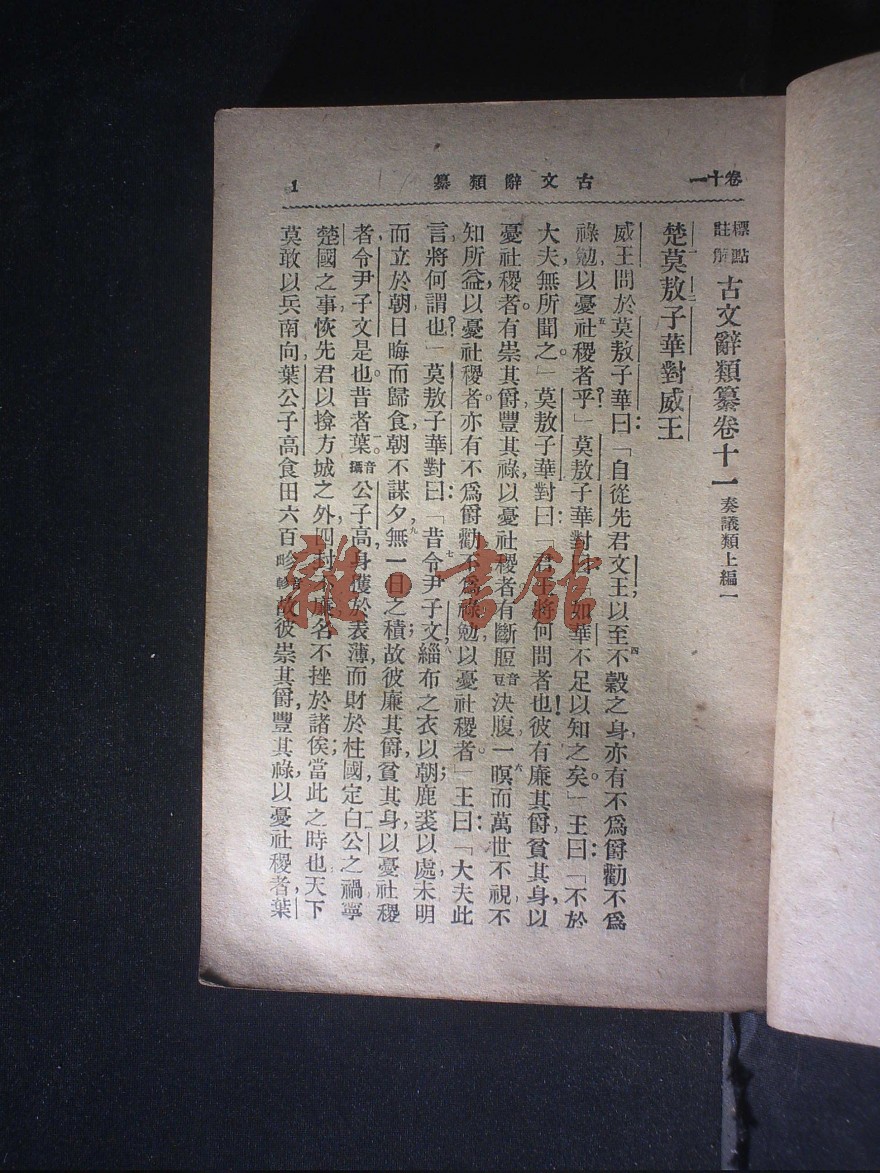 卷十一
古文辭類纂
1
標點註解 古文辭類纂卷十一 奏議類上編一
楚莫敖子華對威王
威王問於莫敖子華曰：「自從先君文王，以至不穀之身，亦有不爲爵勸，不爲
祿勉，以憂社稷者乎？」莫敖子華對曰：「如華不足以知之矣。」王曰：「不於
大夫無所聞之。」莫敖子華對曰：「君王將何問者也！彼有廉其爵，貧其身，以
憂社稷者。有崇其爵，豐其祿，以憂社稷者。有斷脰音豆決腹，一瞑而萬世不視，不
知所益，以憂社稷者。亦有不爲爵勸，不爲祿勉，以憂社稷者。」王曰：「大夫此
言，將何謂也？」莫敖子華對曰：「昔令尹子文，緇布之衣以朝，鹿裘以處；未明
而立於朝，日晦而歸食，朝不謀夕，無一日之積；故彼廉其爵，貧其身，以憂社稷
者，令尹子文是也。昔者葉音攝公子高，身獲於表薄，而財於柱國，定白公之禍，寧
楚國之事，恢先君以揜方城之外，四封不廉，名不挫於諸侯；當此之時也，天下
莫敢以兵南向，葉公子高食田六百畛，故彼崇其爵，豐其祿，以憂社稷者，葉
雜·書館